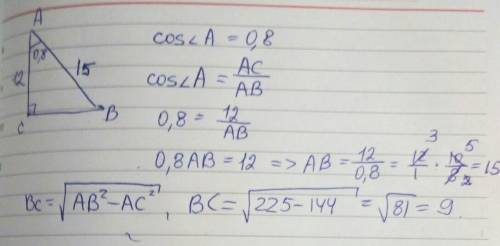 A
0,8
12
15
C
B
cos∠A = 0,8
cos∠A = AC/AB
0,8 = 12/AB
0,8AB = 12 => AB = 12/0,8 = 12/1 · 10/8 = 15
3 5 2
BC = √(AB² - AC²), BC = √(225 - 144) = √81 = 9